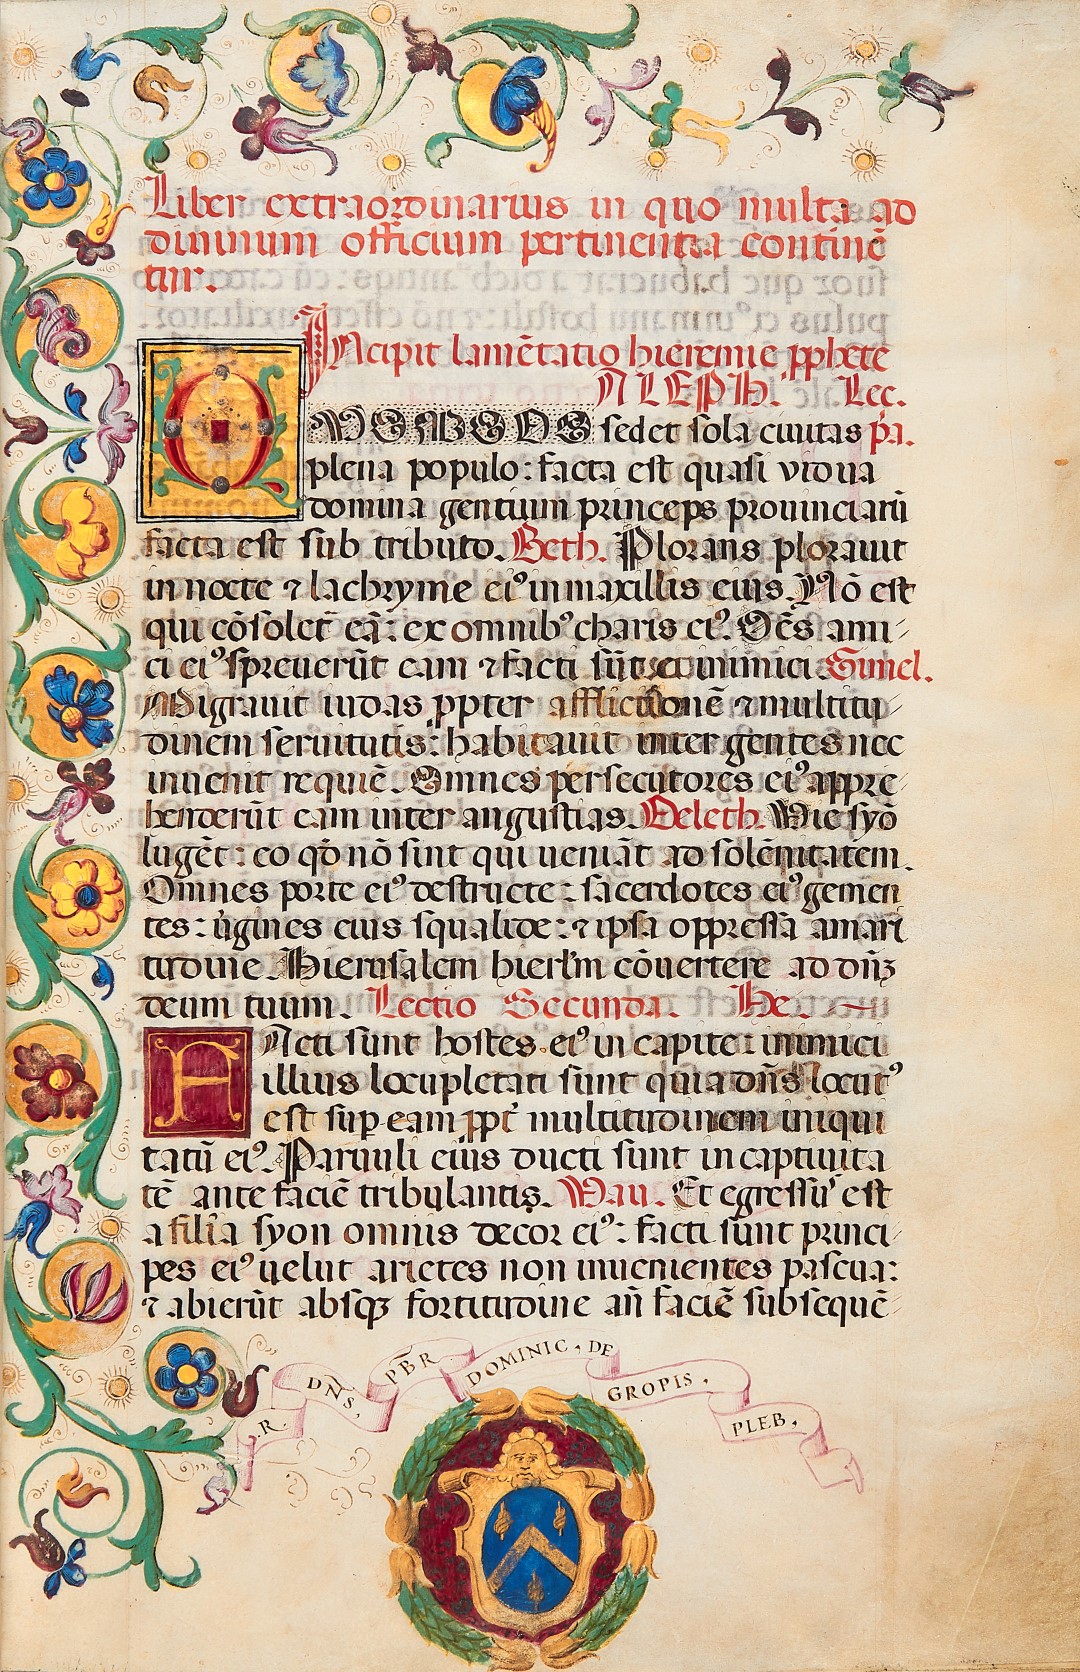 Liber extraordinarius in quo multa ad
diuinum officium pertinentia continē
tur.
INcipit lamētatio hieremie ꝓphete
ALEPH. Lec.
QUOMODO sedet sola ciuitas pa.
plena populo: facta est quasi vidua
domina gentium princeps prouinciarū
facta est sub tributo. Beth. Plorans plorauit
in nocte ⁊ lachryme eiꝰ in maxillis eius. Nō est
qui cōsolet̄ eā: ex omnibꝰ charis eiꝰ. Oēs ami
ci eiꝰ spreuerūt eam ⁊ facti sūt ei inimici. Gimel.
Migrauit iudas ꝓpter afflictionē ⁊ multitu
dinem seruitutis: habitauit inter gentes nec
inuenit requiē. Omnes persecutores eiꝰ appre
henderūt eam inter angustias. Deleth. Vie syō
lugēt: eo qd̄ nō sint qui ueniāt ad solēnitatem.
Omnes porte eiꝰ destructe: sacerdotes eiꝰ gemen
tes: ūgines eius squalide: ⁊ ipsa oppressa amari
tudine Hierusalem hierl̄m cōuertere ad dn̄ꝫ
deum tuum. Lectio Secunda. He.
FActi sunt hostes eiꝰ in capite: inimici
illius locupletati sunt quia dn̄s locutꝰ
est suꝑ eam ꝓpt̄ multitudinem iniqui
tatū eiꝰ. Paruuli eius ducti sunt in captiuita
tē ante faciē tribulantis. Vau. Et egressuꝰ est
a filia syon omnis decor eiꝰ: facti sunt princi
pes eiꝰ uelut arietes non inuenientes pascua:
⁊ abierūt absqꝫ fortitudine an̄ faciē subsequē
.R. DN̄S. PB̄R DOMINIC. DE GROPIS. PLEB.